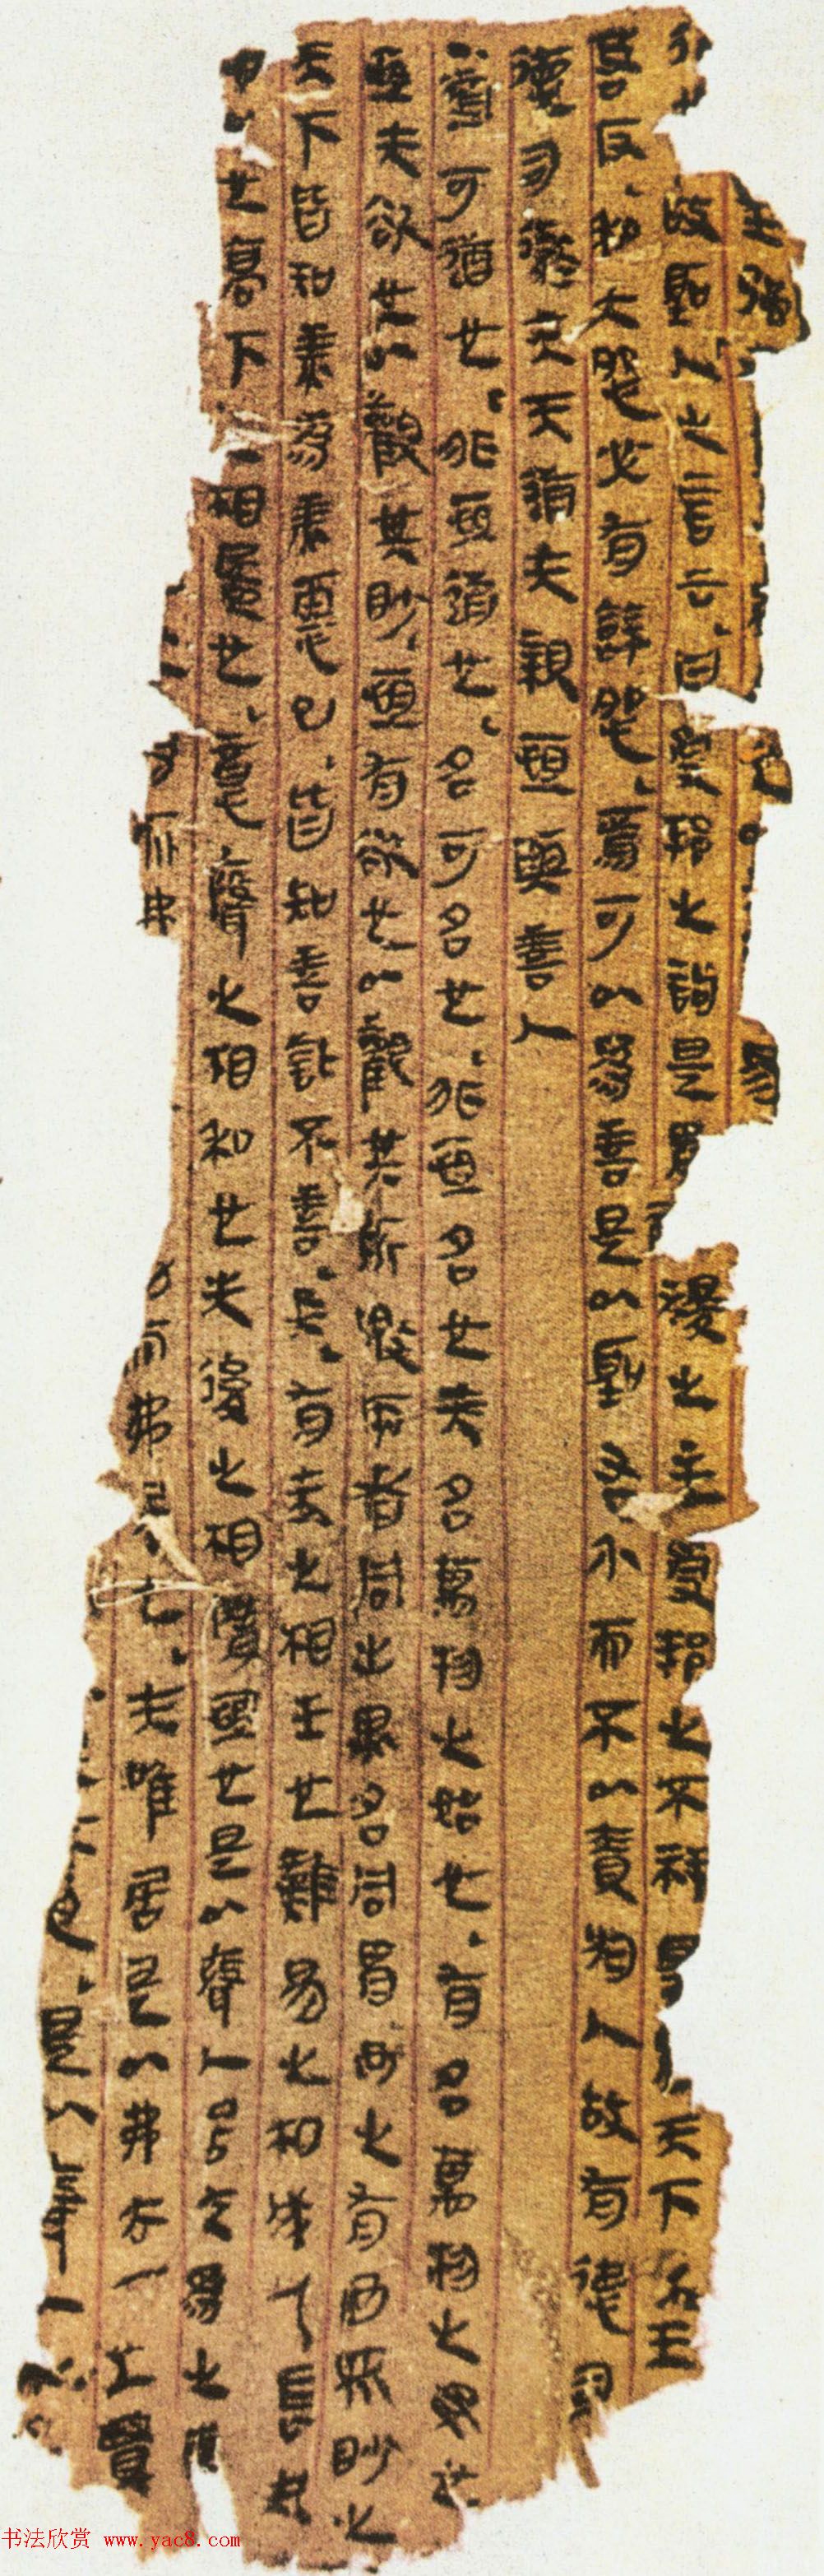 主強
也
易
故聖人之言云曰受邦之訽是胃稷之主受邦之不祥是胃天下之王
若言反和大怨必有餘怨焉可以為善是以聖右介而不以責於人故有德司
德司徹夫天道无親恒與善人
道可道也非恒道也名可名也非恒名也无名萬物之始也有名萬物之母也
恒无欲也以觀其眇恒有欲也以觀其所噭兩者同出異名同胃玄之有玄眾眇之
天下皆知美為美惡已皆知善訾不善矣有无之相生也難易之相成也長短
也高下相盈也意聲之相和也先後之相隋恒也是以聲人居无為之
為而弗
功而弗居也夫唯居是以弗去不上賢
是以聲人
书法欣赏 www.yac8.com